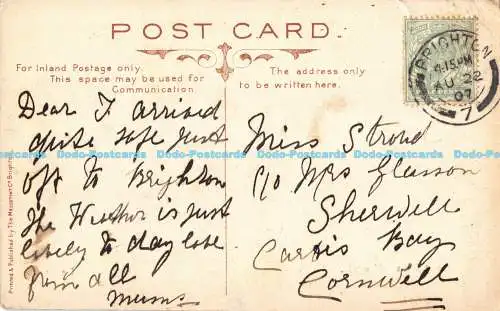 POST CARD.
For Inland Postage only.
This space may be used for
Communication.
The address only
to be written here.
BRIGHTON
4.15 PM
22
07
7
Dear I arrived
quite safe just
off to Brighton
The Weather is just
lovely to day love
from all
mums
Miss Stroud
c/o Mrs Glasson
Sherwell
Carbis Bay
Cornwell
Printed & Published by The Mezzotint Co Brighton
Dodo-Postcards Dodo-Postcards Dodo-Postcards Dodo-Postcards Dodo-Postcards